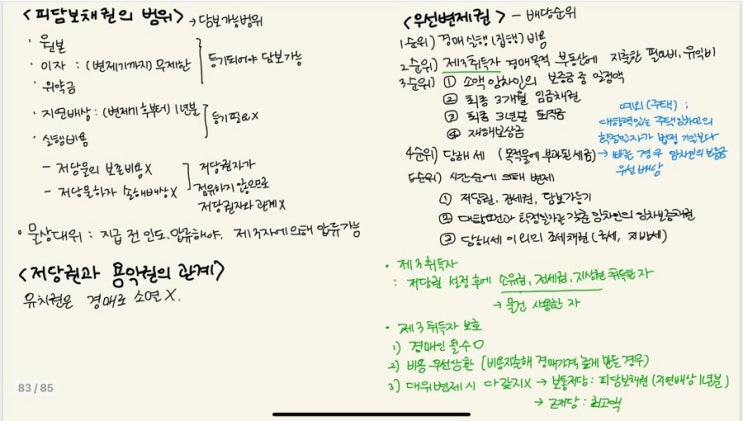 <피담보채권의 범위> → 담보가능범위
· 원본
· 이자 : (변제기까지) 무제한
· 위약금
등기되어야 담보가능
· 지연배상 : (변제기후부터) 1년분
· 실행비용
등기필요X
- 저당물의 보존비용X
- 저당물하자 손해배상X
저당권자가
점유하지 않으므로
저당권자와 관계X
· 물상대위 : 지급 전 인도. 압류해야. 제3자에 의해 압류가능
<저당권과 용익권의 관계>
유치권은 경매로 소멸X.
83 / 85
<우선변제권> - 배당순위
1순위) 경매실행(집행) 비용
2순위) 제3취득자 경매목적 부동산에 지출한 필요비, 유익비
3순위) ① 소액임차인의 보증금 중 일정액
② 최종 3개월 임금채권
③ 최종 3년분 퇴직금
④ 재해보상금
4순위) 당해세 (목적물에 부과된 세금)
예외(주택) ;
대항력있는 주택임차인의
확정일자가 법정기일보다
→ 빠른 경우 임차인의 보증금
우선배당
5순위) 시간순에 의해 변제
① 저당권, 전세권, 담보가등기
② 대항요건과 확정일자를 갖춘 임차인의 임차보증채권
③ 당해세 이외의 조세채권 (국세, 지방세)
· 제3취득자
: 저당권 설정 후에 소유권, 전세권, 지상권 취득한 자
→ 물건 사용한 자
· 제3취득자 보호
1) 경매인 될수 O
2) 비용 우선상환 (비용지출해 경매가격 높게 만든 경우)
3) 대위변제시 다 갚지X → 보통저당 : 피담보채권 (지연배상 1년분)
→ 근저당 : 최고액